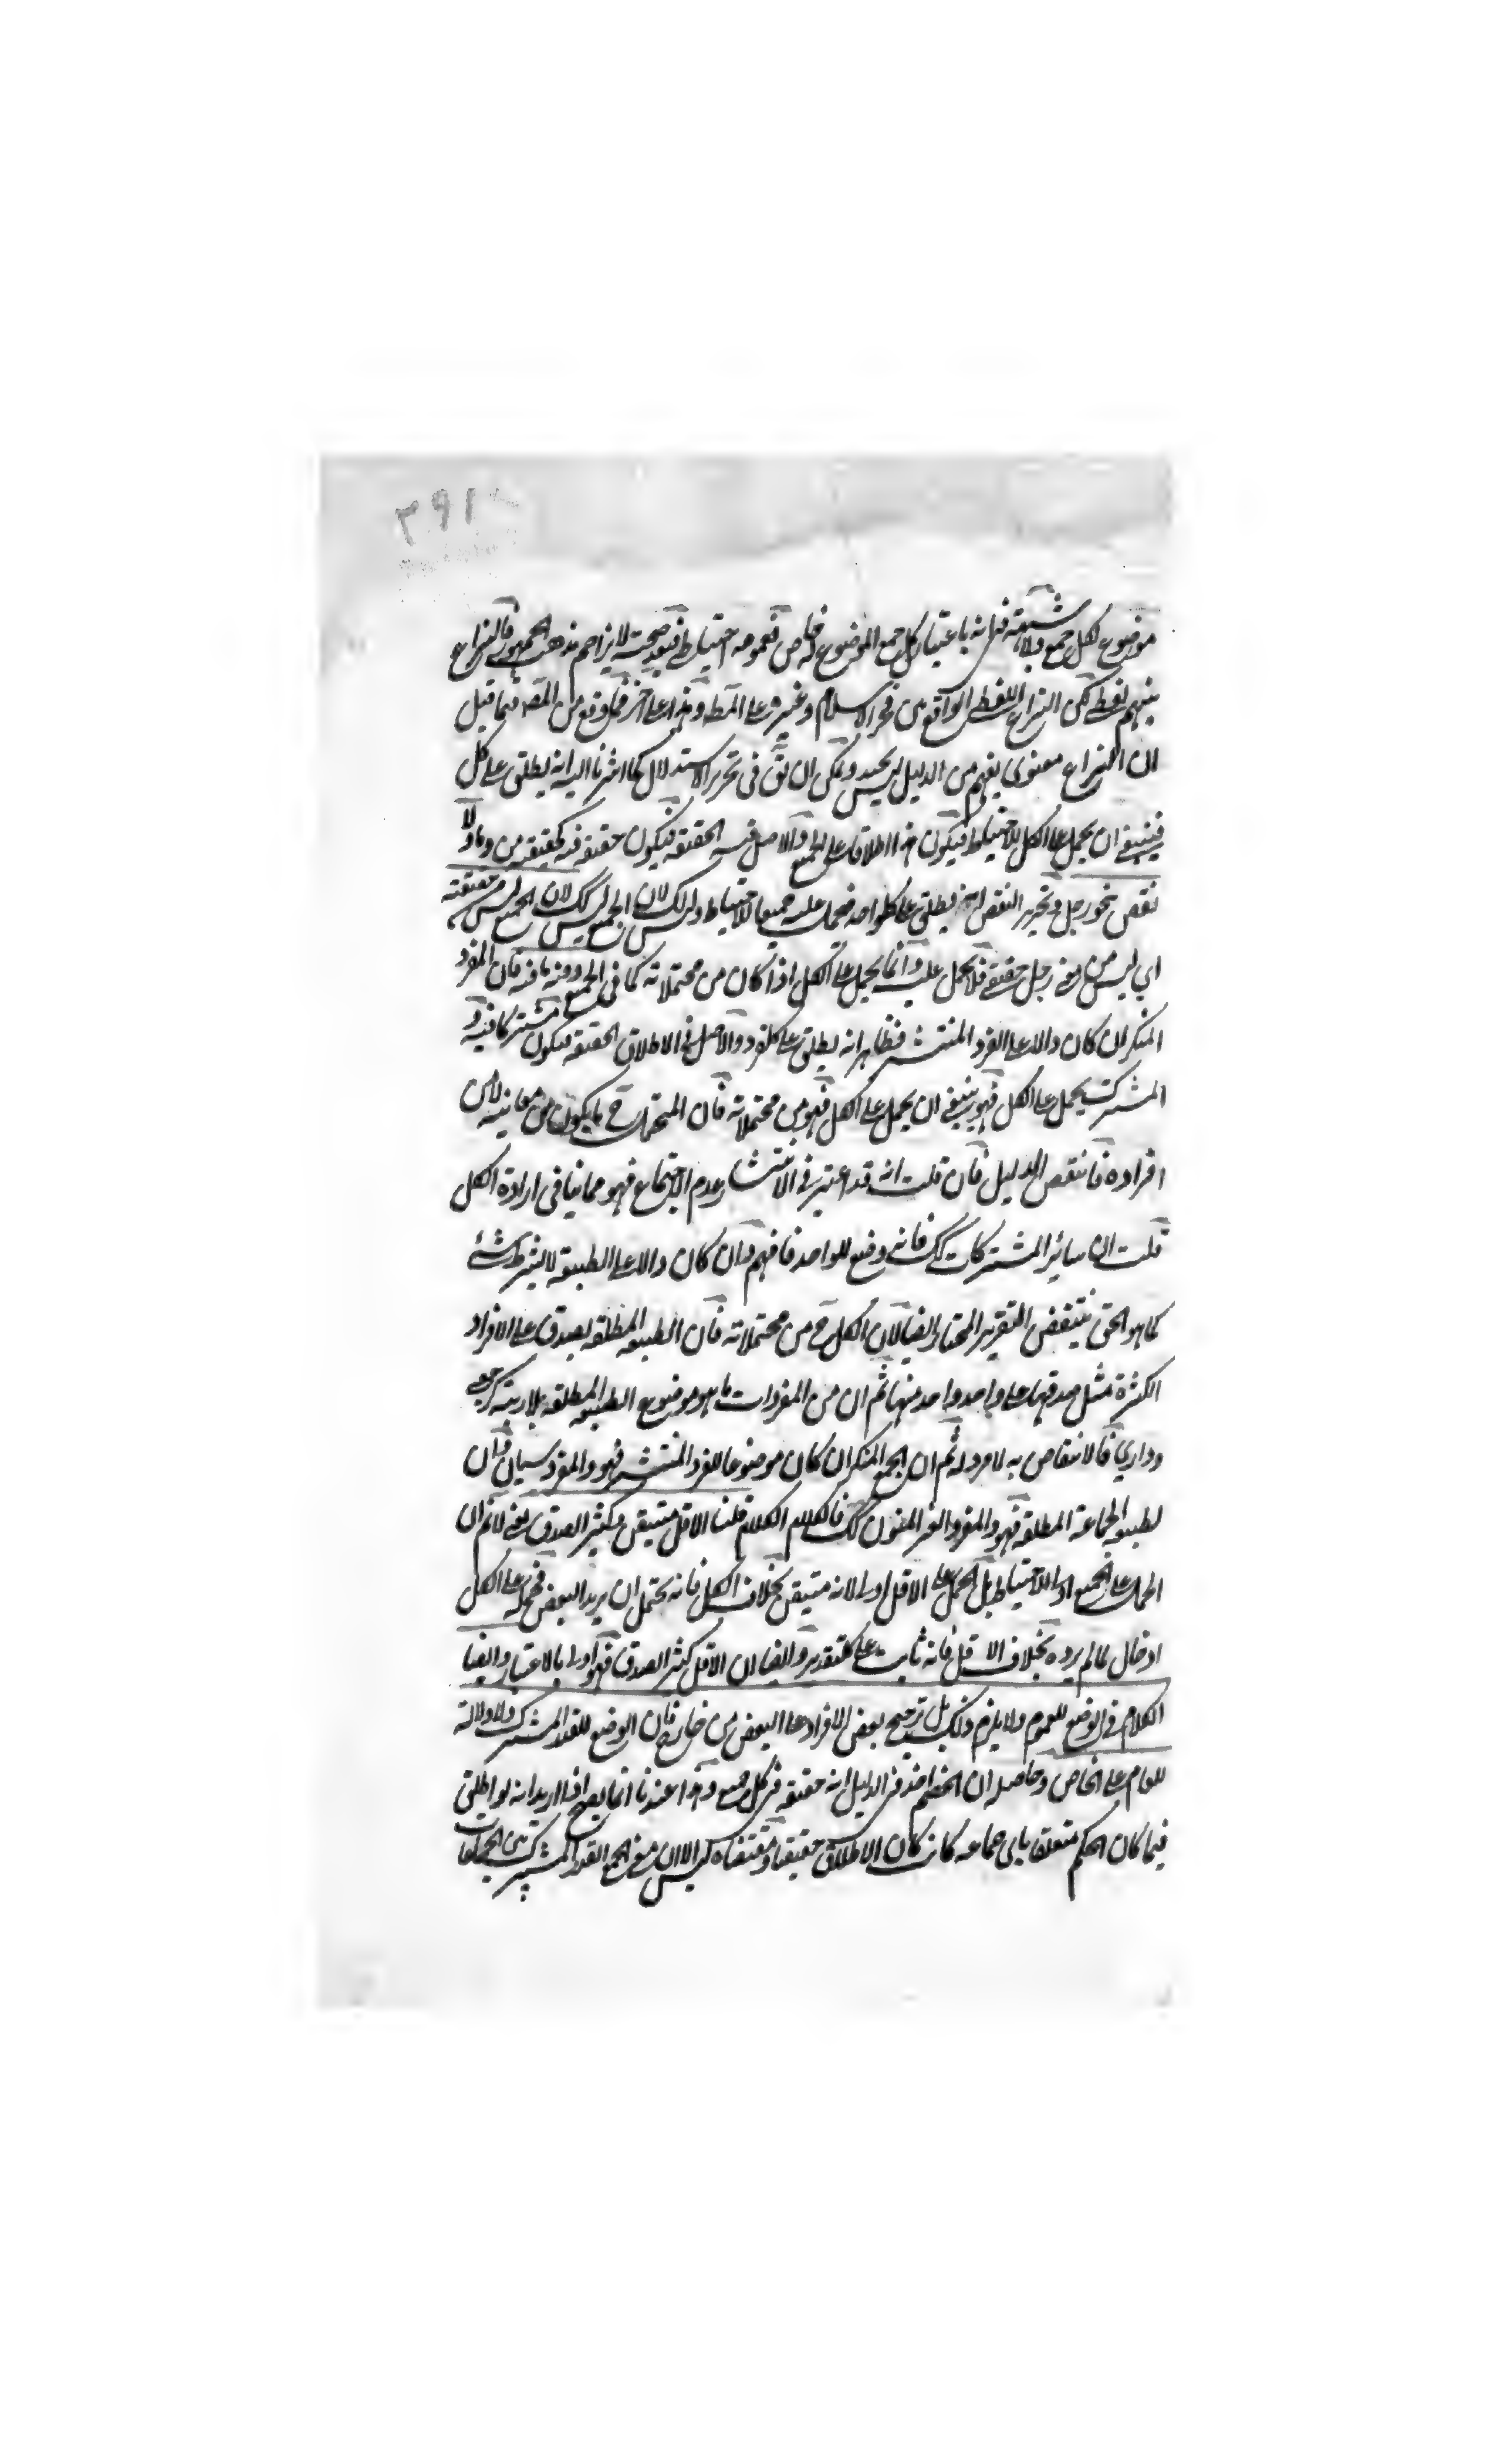 ٣٩١
موضوع لكل جمع وبلا شبهة قيل انه باعتبار كل جمع الموضوع له خاص فعمومه احتياط فبعد صحته لا يزاحم مذهب الجمهور فالنزاع
بينهم لفظي لكن النزاع اللفظي الواقع من فخر الاسلام وغيره على المط وهذا على آخر فما وقع من المصه فما قيل
ان النزاع معنوى يفهم من الدليل ليس بجيد ويمكن ان يق في تحرير الاستدلال كما اشرنا اليه انه يطلق على كل
فينبغي ان يحمل على الكل للاحتياط فيكون هذا اطلاقا على الجميع والاصل فيه الحقيقة فيكون حقيقة فيه كحقيقة من وما اولا
نقض بنحو رجل وتحرير النقض انه يطلق على كل واحد فيحمل عليه جميعا للاحتياط وليس كك لان الجميع ليس كك لان الجميع ليس من حقيقته
اي ليس من معنى رجل حقيقة فلا يحمل عليه وانما يحمل على الكل اذا كان من محتملاته كما في الجمع دونه ما فيه فان المفرد
المنكر ان كان دالا على الفرد المنتشر فظاهر انه يطلق على كل فرد والاصل في الاطلاق الحقيقة فيكون مشتركا فيه و
المشترك يحمل على الكل فهو ينبغي ان يحمل على الكل فهو من محتملاته فان المحتملات ح ما يكون من معانيه لا من
افراده فانتقض الدليل فان قلت انه قد اعتبر في الانتشار عدم الاجتماع فهو مما ينافي ارادة الكل
قلت ان سائر المشتركات كك فانه وضع للواحد فافهم وان كان دالا على الطبيعة لا بشرط شئ
كما هو الحق ينتقض التقرير المختار ايضا لان الكل ح من محتملاته فان الطبيعة المطلقة يصدق على الافراد
الكثرة مثل صدقها على واحد واحد منها ثم ان من المفردات ما هو موضوع الطبيعة المطلقة بلا ريبة كرجعى
وداري فالانتقاض به لا مرد له ثم ان الجمع المنكر ان كان موضوعا للفرد المنتشر فهو والمفرد سيان وان
لطبيعة الجماعة المطلقة فهو والمفرد الغير المنون كك فالكلام الكلام قلنا الاقل متيقن وكثير الصدق يعني لا نم ان
الحمل على الجميع اولى للاحتياط بل الحمل على الاقل اولى لانه متيقن بخلاف الكل فانه يحتمل ان يريد البعض فحمله على الكل
ادخال لما لم يرده بخلاف الاقل فانه ثابت على كل تقدير وايضا ان الاقل كثير الصدق فهو اولى بالاعتبار وايضا
الكلام في الوضع للعموم ولا يلزم ذلك بل ترجيح بعض الافراد على البعض من خارج فان الوضع للقدر المشترك ولا دلالة
للعام على الخاص وحاصله ان الخصم اخذ في الدليل انه حقيقة في كل جمع وهذا عندنا انما يصح اذا اريد انه لو اطلق
فيما كان الحكم متعلقا باى جماعة كانت كان الاطلاق حقيقيا ومقتضاه ليس الا ان معنى الجمع القدر المشترك بين الجماعات